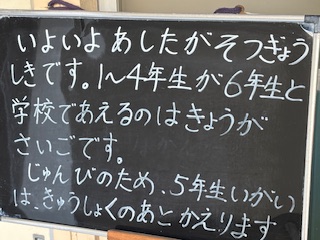 いよいよ あしたが そつぎょう
しきです。1～4年生が6年生と
学校であえるのは きょうが
さいごです。
じゅんびのため、5年生いがい
は、きゅうしょくのあと かえります